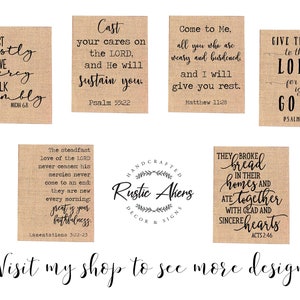 MICAH 6:8
Cast
your cares on
the LORD,
and He will
sustain you.
Psalm 55:22
Come to Me,
all you who are
weary and burdened,
and I will
give you rest.
Matthew 11:28
GIVE THA
TO THE
LO
FOR
GO
PSALM
The steadfast
love of the LORD
never ceases; his
mercies never
come to an end
they are new
every morning;
great is your
faithfulness.
Lamentations 3:22-23
HANDCRAFTED
Rustic Akers
DECOR & SIGNS
THEY BROKE
bread
IN THEIR
homes AND
ATE together
WITH GLAD AND
SINCERE hearts
ACTS 2:46
Visit my shop to see more design